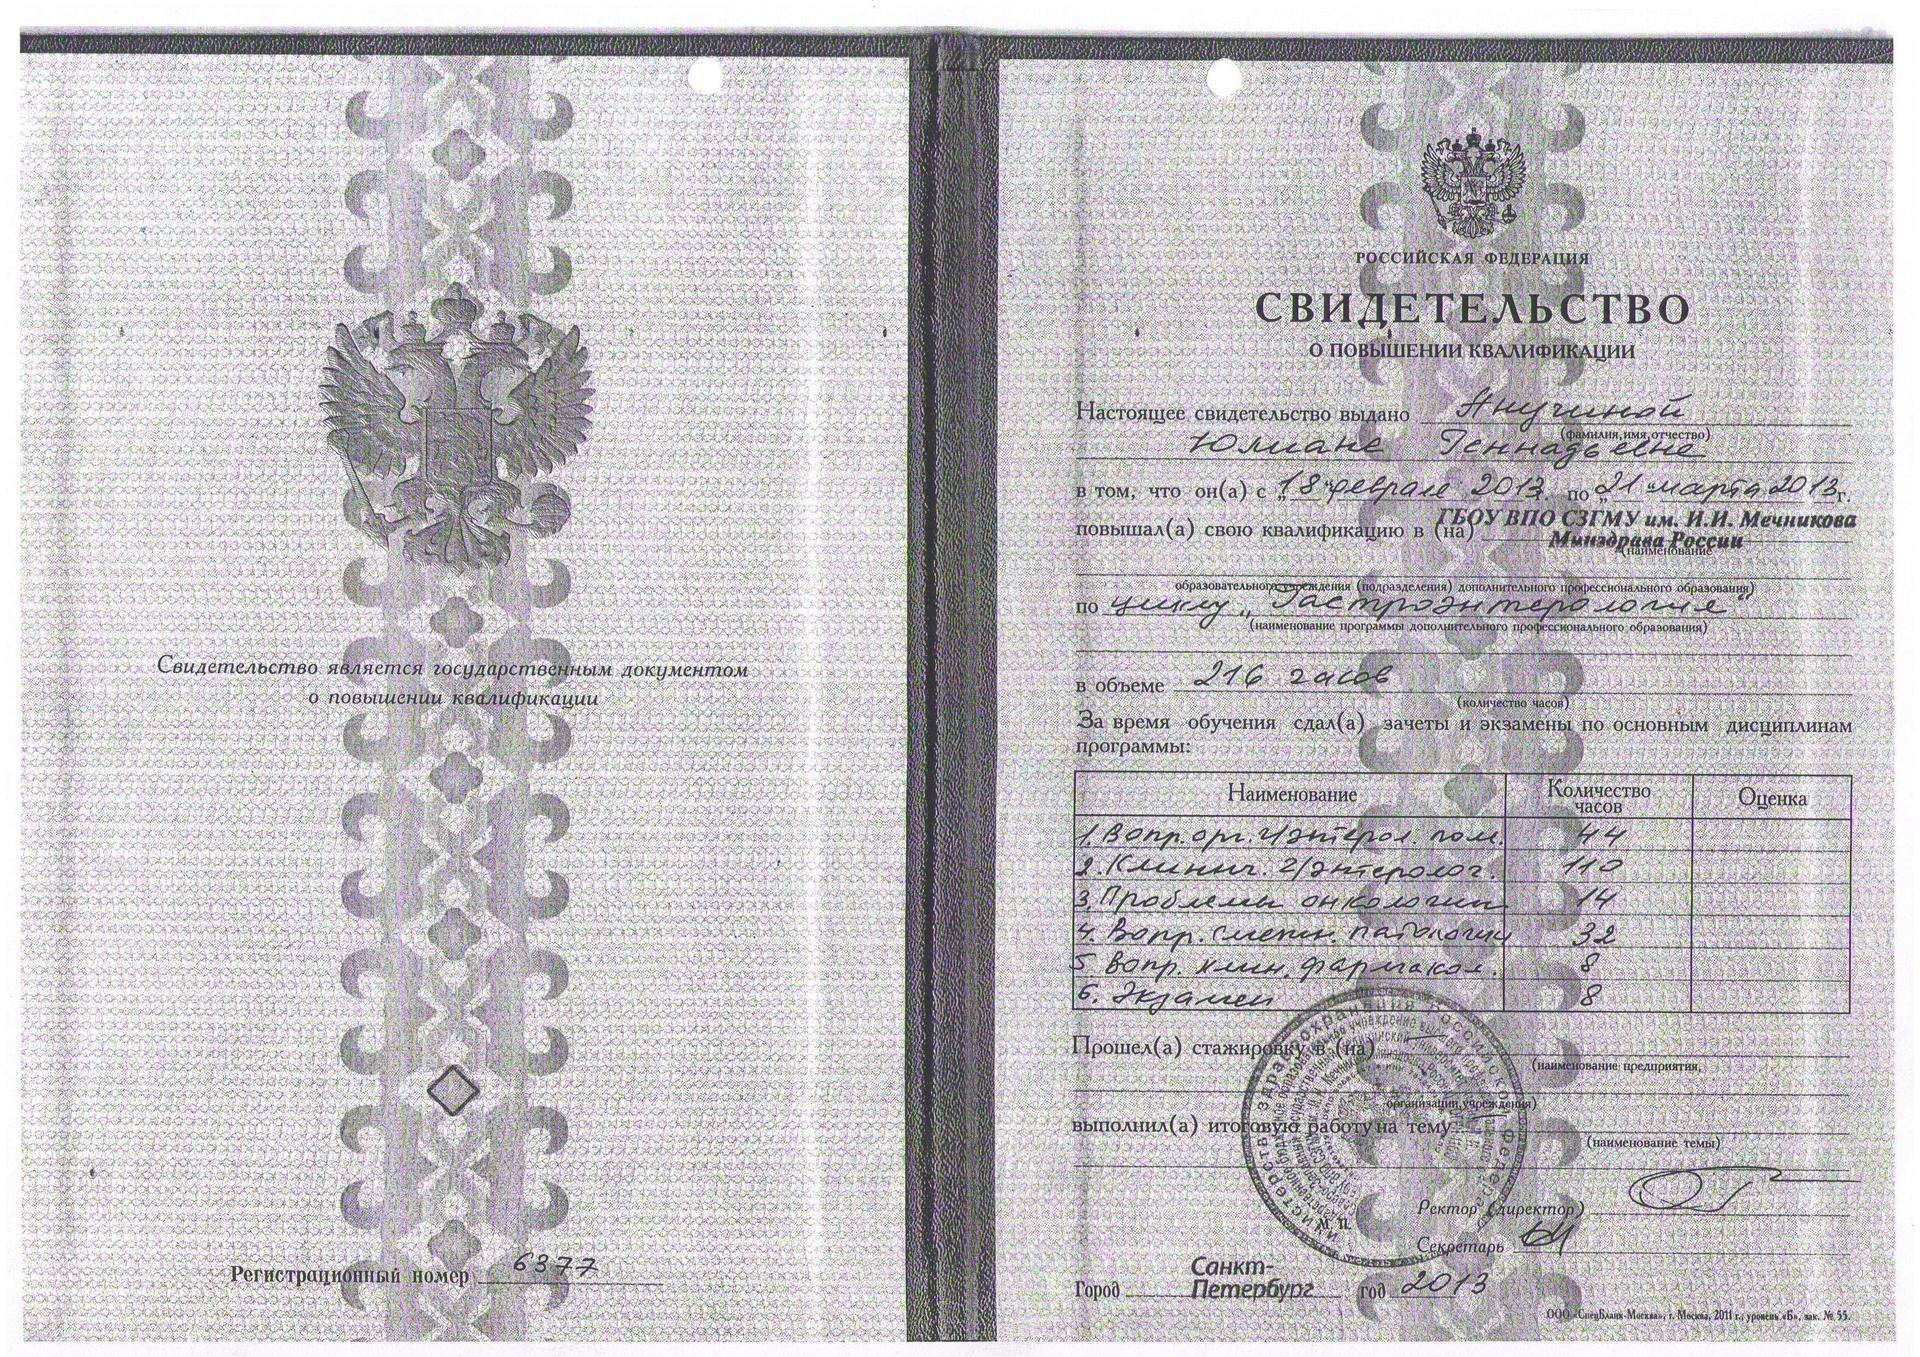 Свидетельство является государственным документом
о повышении квалификации
Регистрационный номер 6377
РОССИЙСКАЯ ФЕДЕРАЦИЯ
СВИДЕТЕЛЬСТВО
О ПОВЫШЕНИИ КВАЛИФИКАЦИИ
Настоящее свидетельство выдано Анучиной
(фамилия, имя, отчество)
Юлиане Геннадьевне
в том, что он(а) с „18" февраля 2013г. по „21" марта 2013г.
повышал(а) свою квалификацию в (на) ГБОУ ВПО СЗГМУ им. И.И. Мечникова
Минздрава России
(наименование
образовательного учреждения (подразделения) дополнительного профессионального образования)
по циклу „Гастроэнтерология"
(наименование программы дополнительного профессионального образования)
в объеме 216 часов
(количество часов)
За время обучения сдал(а) зачеты и экзамены по основным дисциплинам
программы:
Наименование Количество часов Оценка
1. Вопр. орг. г/энтерол. пом. 44
2. Клинич. г/энтеролог. 110
3. Проблемы онкологии 14
4. Вопр. смежн. патологии 32
5 Вопр. клин. фармакол. 8
6. Экзамен 8
Прошел(а) стажировку в (на)
(наименование предприятия,
организации, учреждения)
выполнил(а) итоговую работу на тему
(наименование темы)
Ректор (директор)
М. П.
Секретарь
Город Санкт-Петербург год 2013
ООО «СпецБланк-Москва», г. Москва, 2011 г., уровень «Б», зак. № 55.